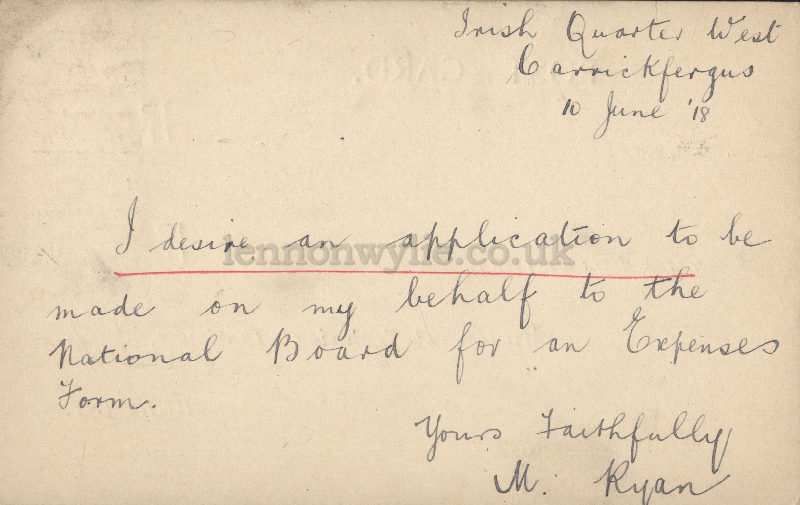 Irish Quarter West
Carrickfergus
10 June '18
I desire an application to be
made on my behalf to the
National Board for an Expenses
Form.
Yours Faithfully
M. Ryan
lennonwylie.co.uk